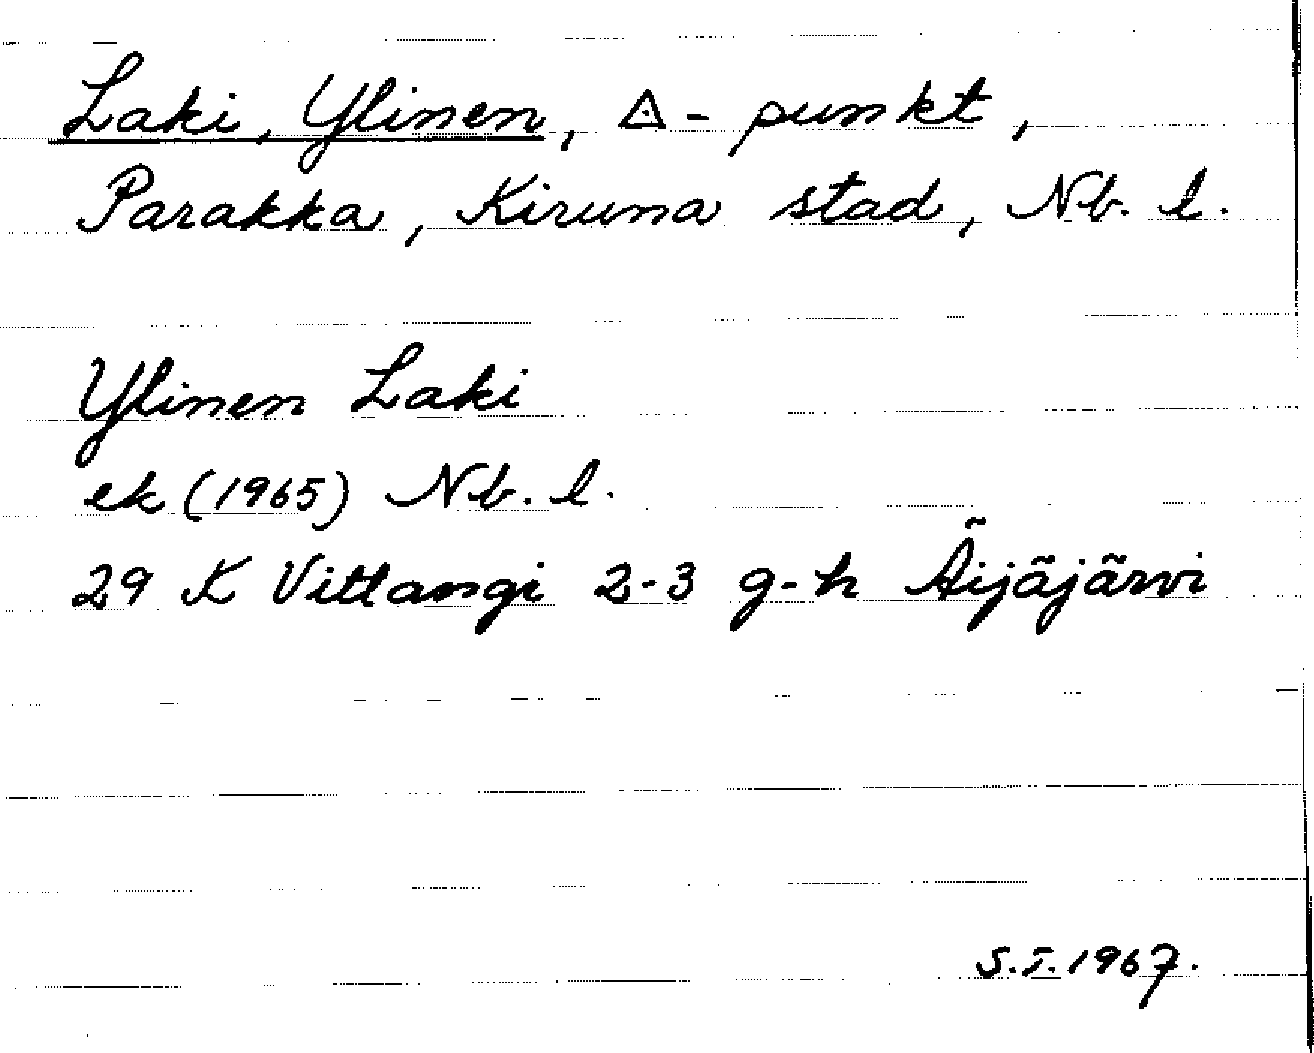 Laki, Ylinen, △-punkt,
Parakka, Kiruna stad, Nb. l.
Ylinen Laki
ek (1965) Nb. l.
29 K Vittangi 2-3 g-h Äijäjärvi
S.I.1967.